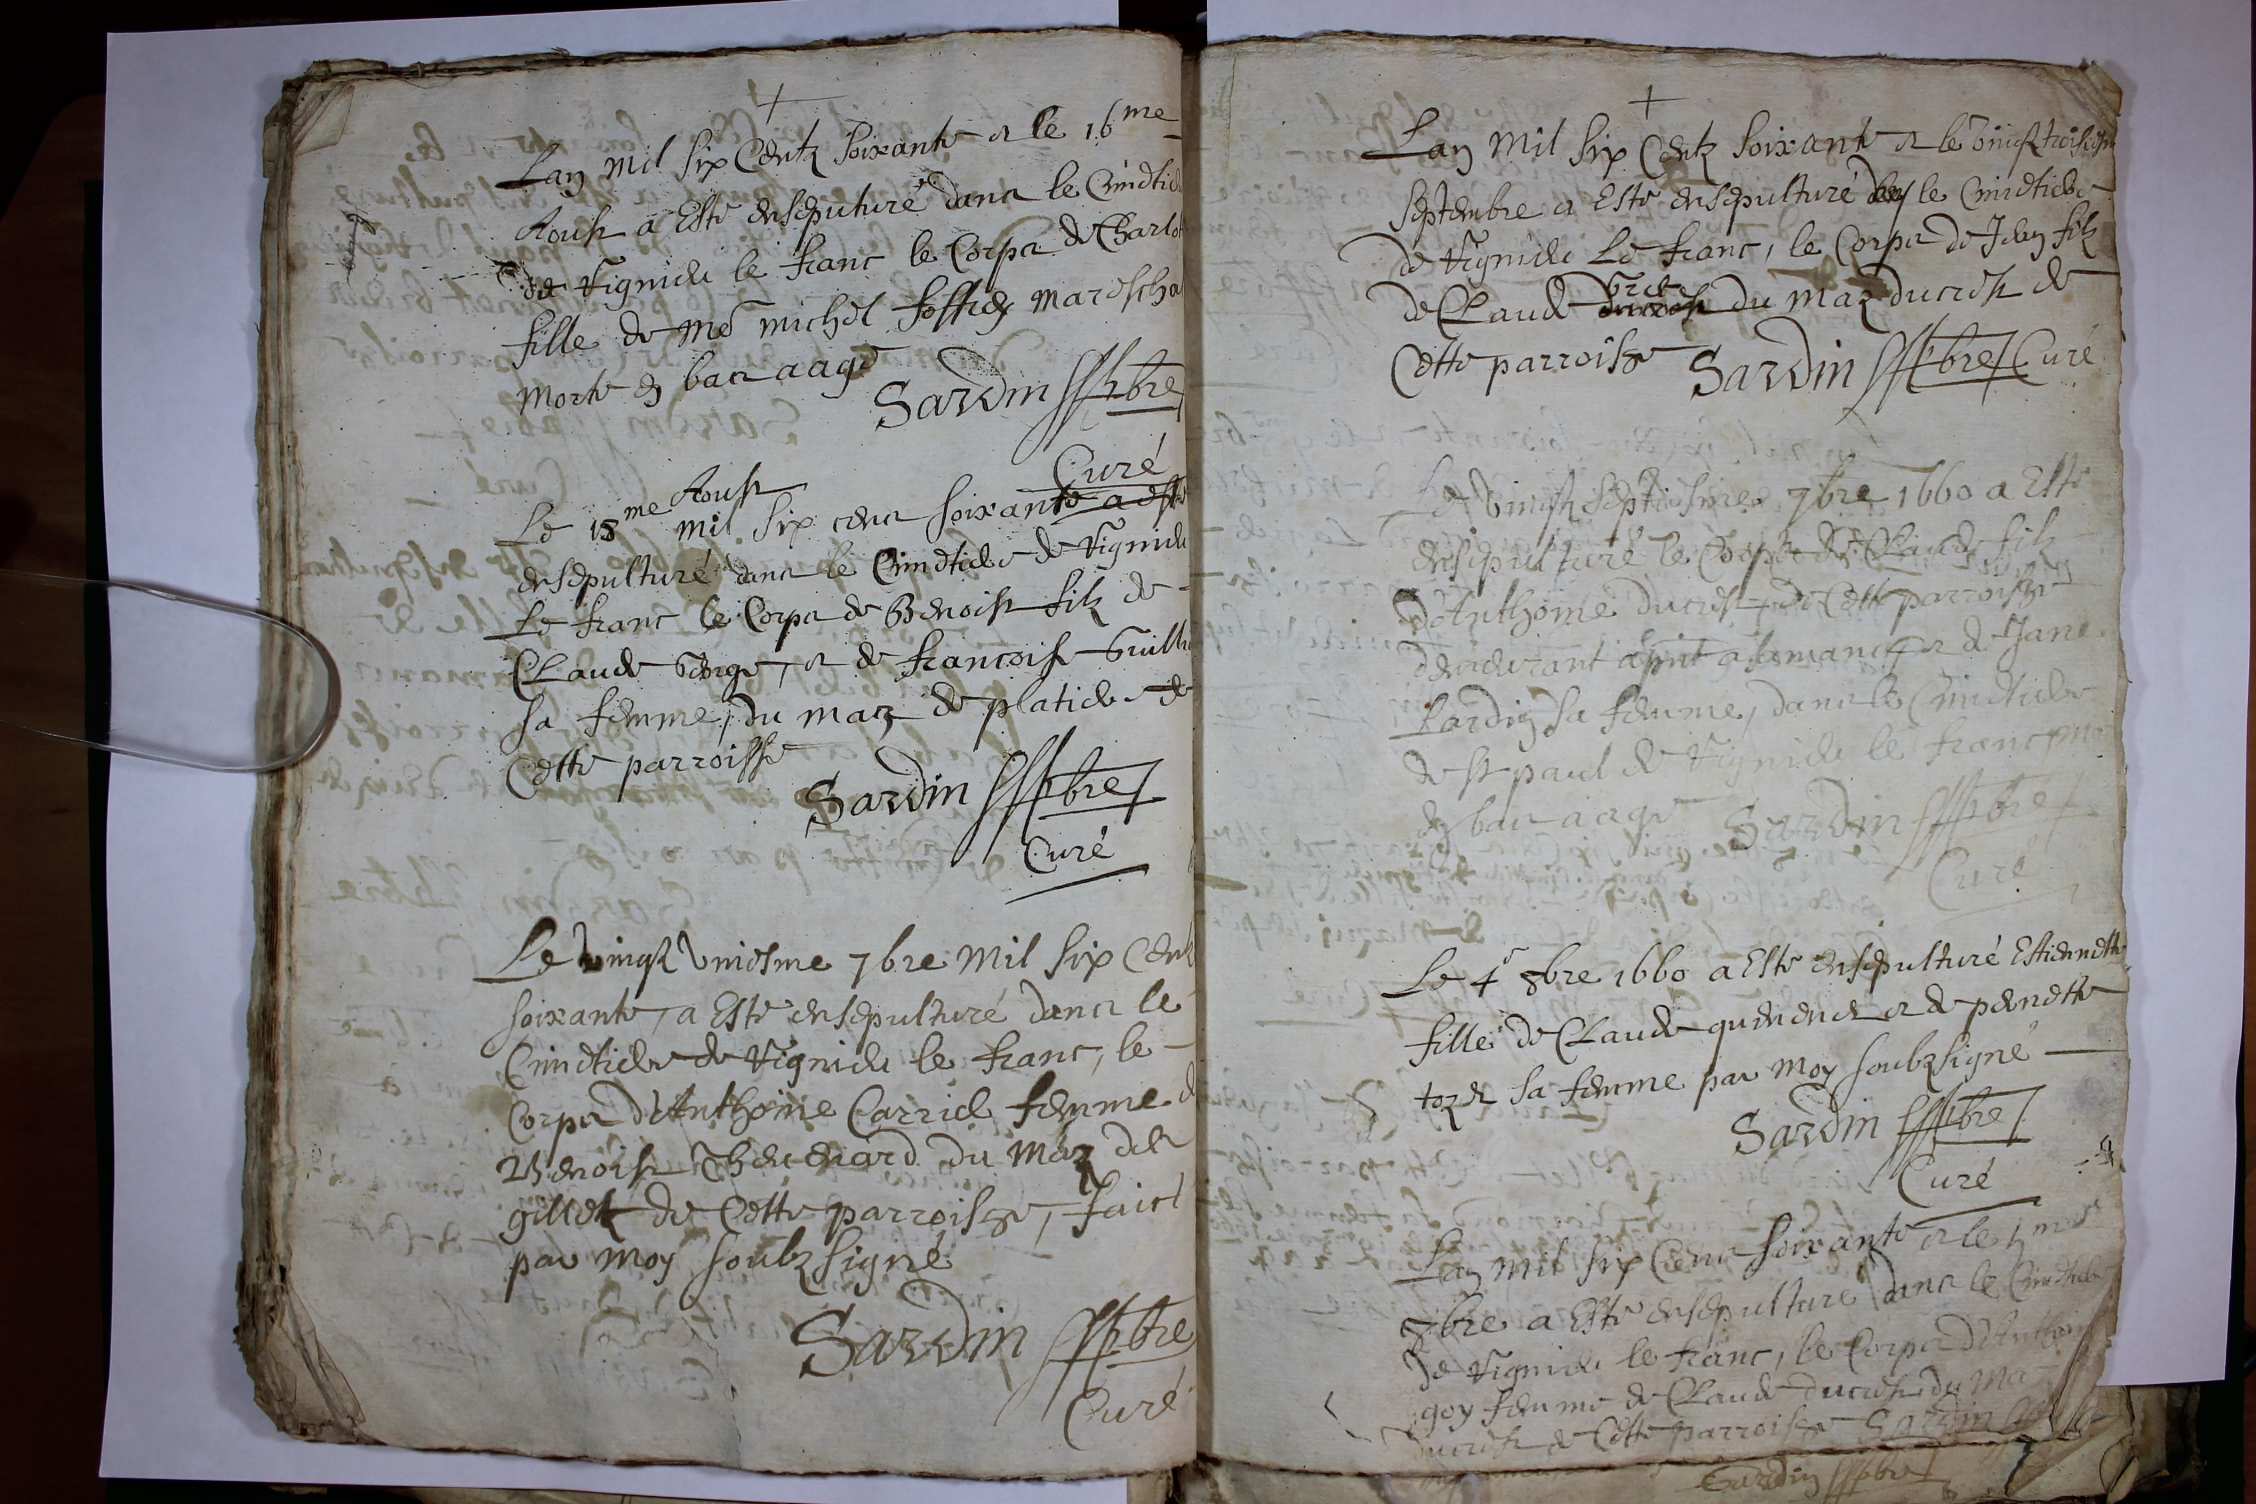 Lan mil six Centz soixante et le 16me
Aoust a Esté ensepulturé dans le Cimetiere
de Vignieu le franc le Corps de Charlot
fille de Me michel maréscha
morte en bas aagé
Sardin pbre
Curé
Le 18me Aoust mil six cens soixante a esté
ensepulturé dans le Cimetiere de Vignieu
Le franc le Corps de Benoist filz de
Claude George, et de francoise Guille
sa femme, du maz de platiere de
Cette parroisse
Sardin pbre
Curé
Le vingt uniesme 7bre mil six Centz
soixante, a Esté ensepulturé dans le
Cimetiere de Vignieu le franc, le
Corps d'Anthoine Carriel femme d
Benoist Thevenard du maz des
gillet de Cette parroisse, faict
par moy soubzsigné
Sardin pbre
Curé
Lan mil six Centz soixante et le vingt troisiesm
septembre a Esté ensepulturé dans le Cimetiere
de Vignieu Le franc, le Corps de Jean filz
de Claude du maz ducrest de
Cette parroisse Sardin pbre Curé
Le vingt septiesme 7bre 1660 a Esté
ensepulturé le Corps de Claude filz
d'Anthoine ducrest de Cette parroisse
et de Jane
Lardin sa femme, dans le Cimetiere
de st paul de Vignieu le franc
en bas aagé Sardin pbre
Curé
Le 4e 8bre 1660 a Esté ensepulturé Estiennette
fille de Claude et de pernette
sa femme par moy soubzsigné
Sardin pbre
Curé
Lan mil six Cens soixante et le
8bre a Esté ensepulturé dans le Cimetiere
de Vignieu le franc, le Corps d'Anthoin
goy femme de Claude ducrest du ma
ducrest de Cette parroisse Sardin pbre
Sardin pbre